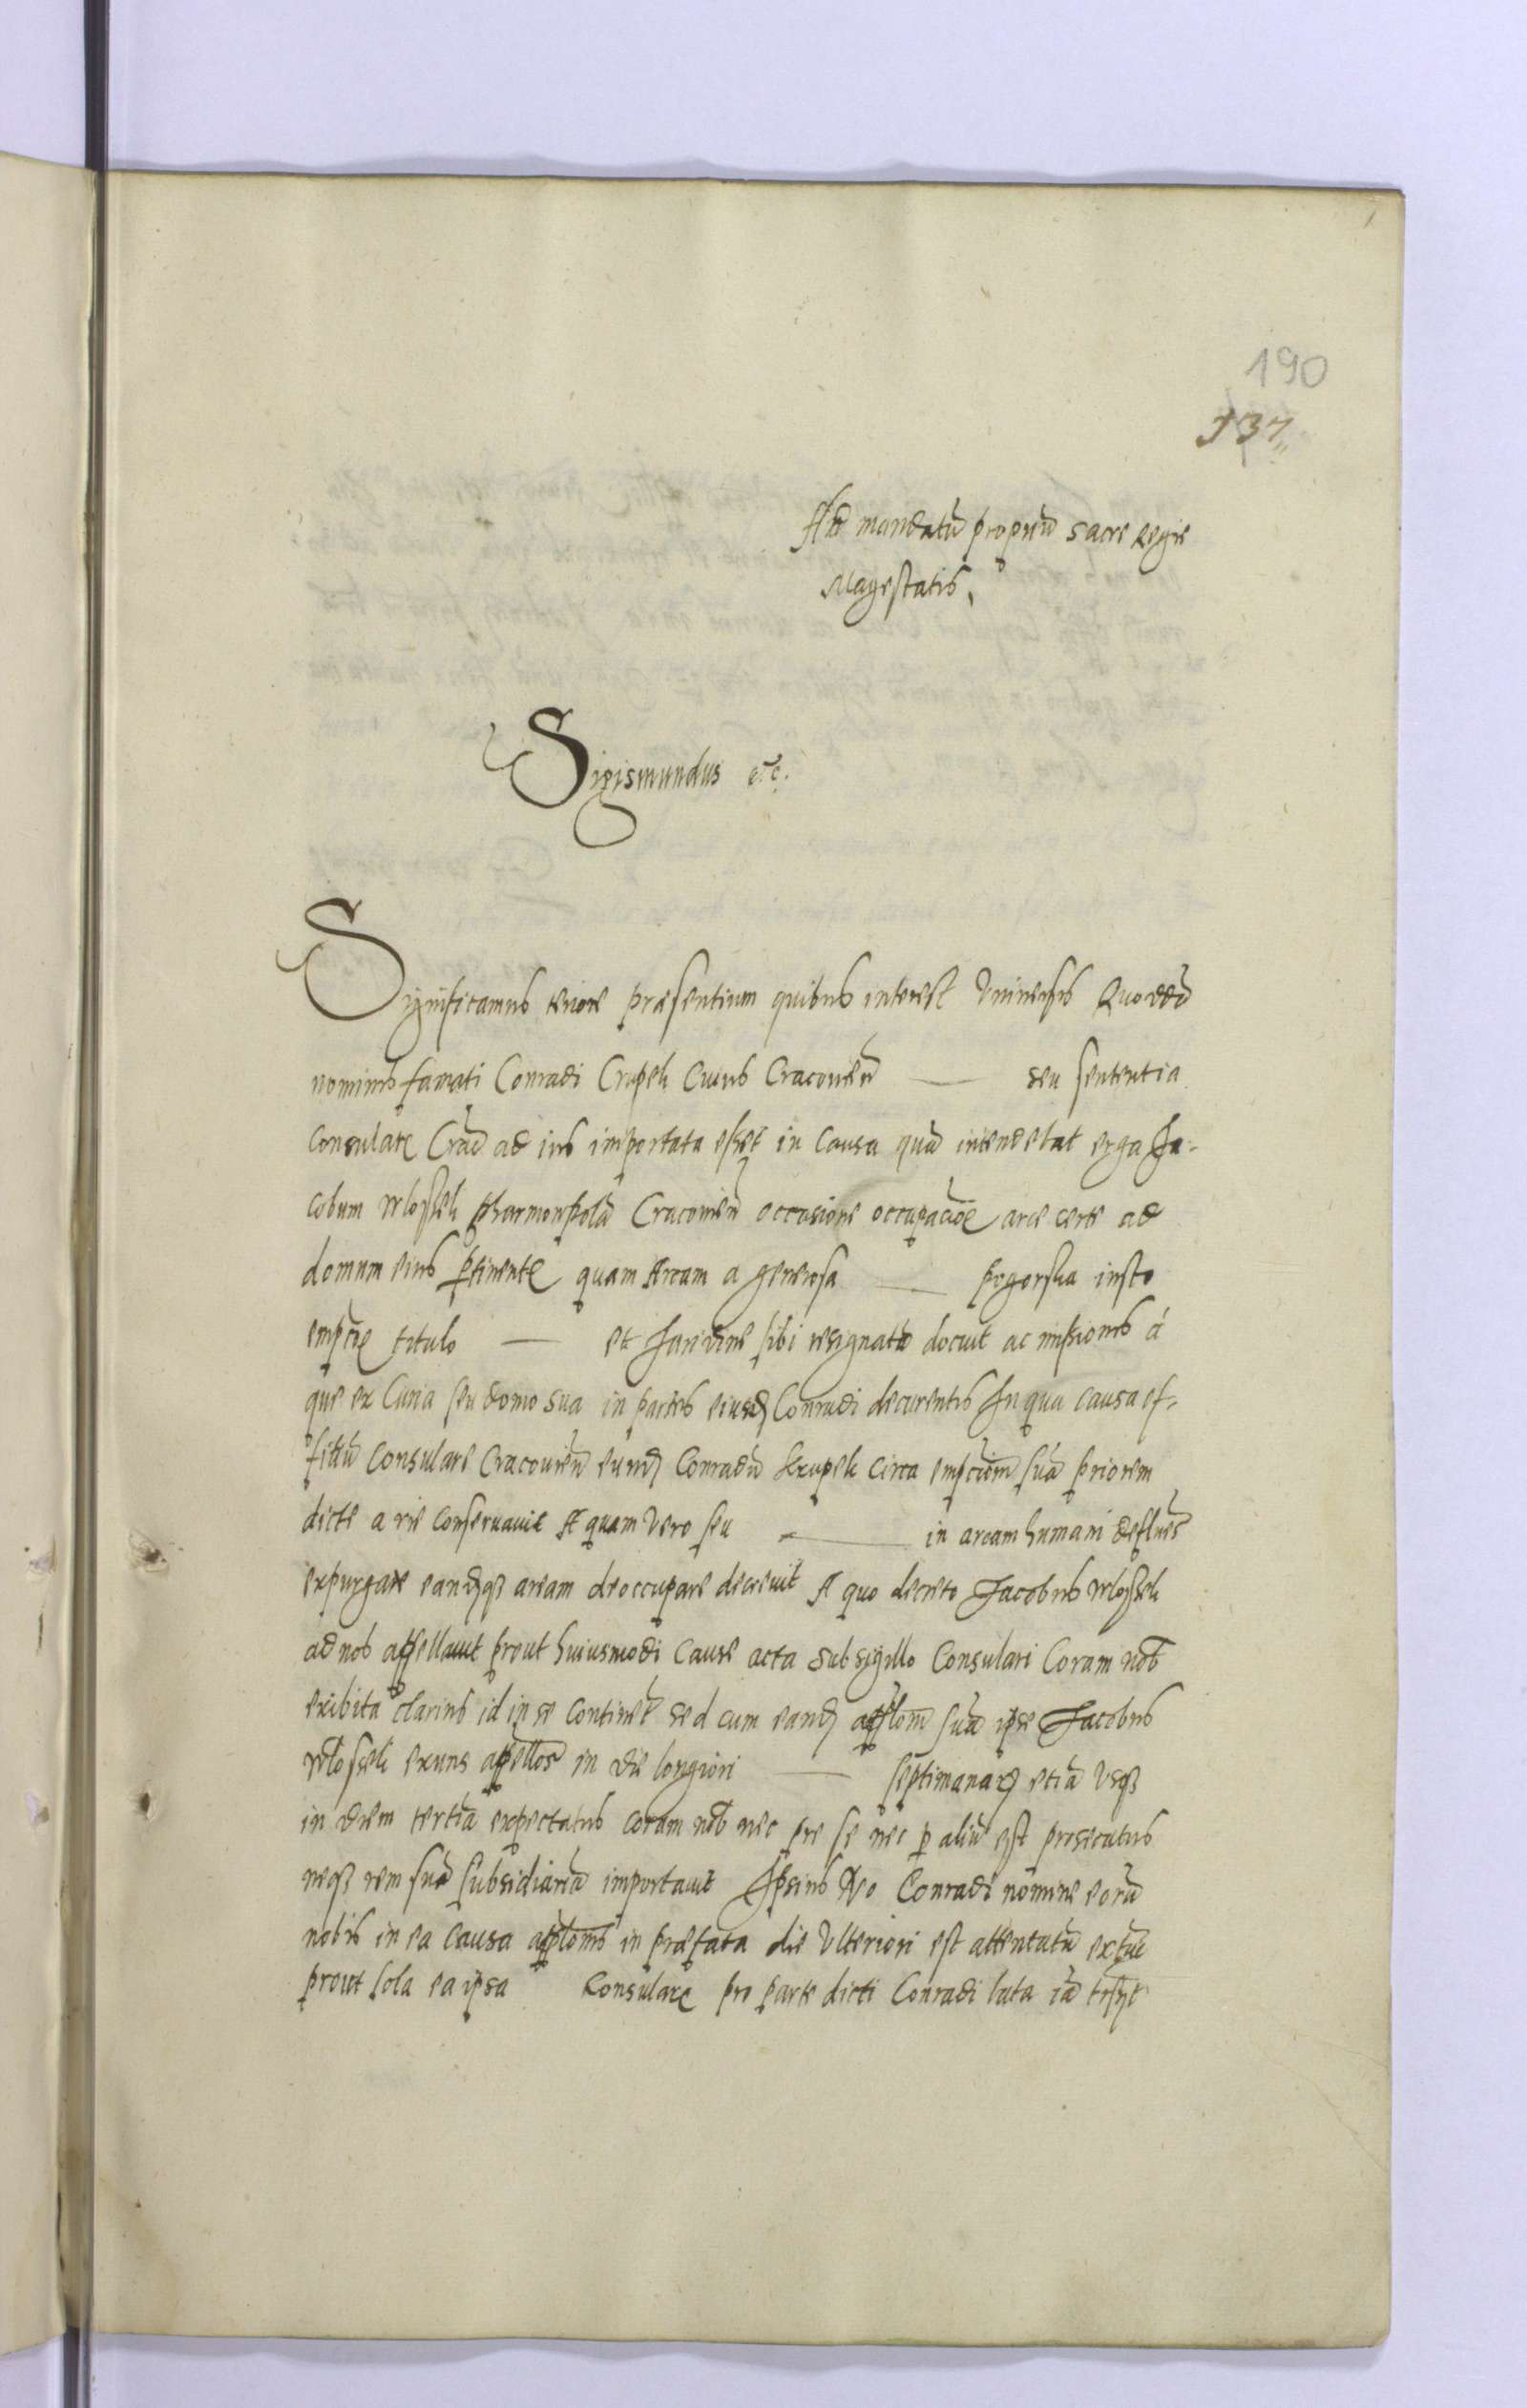 190
137
Ad mandatū propriū Sacre Regie
Magestatis,
Sigismundus etc.
Significamus tenore præsentium quibus interest Vniuersis Quod dū
nominis famati Conradi Crupek Ciuis Cracouien̄ — seu sententia
Consulare Crac̄ ad ius importata esset in Causa quā intendebat erga Ja-
cobum Wlossek pharmopolā Cracouien̄ occasione occupac̄oe aree certe ad
domum eius ptinente quam Aream a generosa — pogorska iusto
empc̄ie titulo — et Juridine sibi resignatā docuit ac missionis a-
que ex Curia seu domo sua in partes eiusd Conradi decurentis In qua causa of-
fitiū Consulare Cracouien̄ eund Conradū Krupek Circa empcionē suā priorem
dicte arie conseruauit Aquam vero seu — in aream humani defluen̄
expurgare eandqz aream deoccupare decreuit A quo decreto Jacobus Wlossek
ad nos appellauit prout huiusmodi Cause acta sub sigillo Consulari Coram nob
exibita clarius id in se continet sed cum eand applom̄ suā ipse Jacobus
Wlossek in die longiori — septimanarz etiā vsqz
in diem tertiā expectatus coram nob nec per se nec p aliū est prosecutus
neqz rem suā subsidiariā importauit Ipsius Vo Conradi nomine corā
nobis in ea causa applomis in præfata die Vlteriori est attentatū
prout sola ea ipsa Consulare pro parte dicti Conradi lata iā